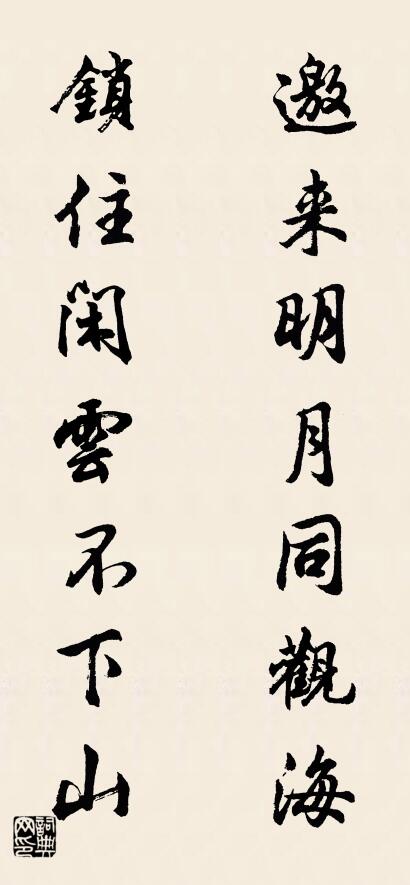 邀来明月同觀海
鎖住閑雲不下山
詞典網印